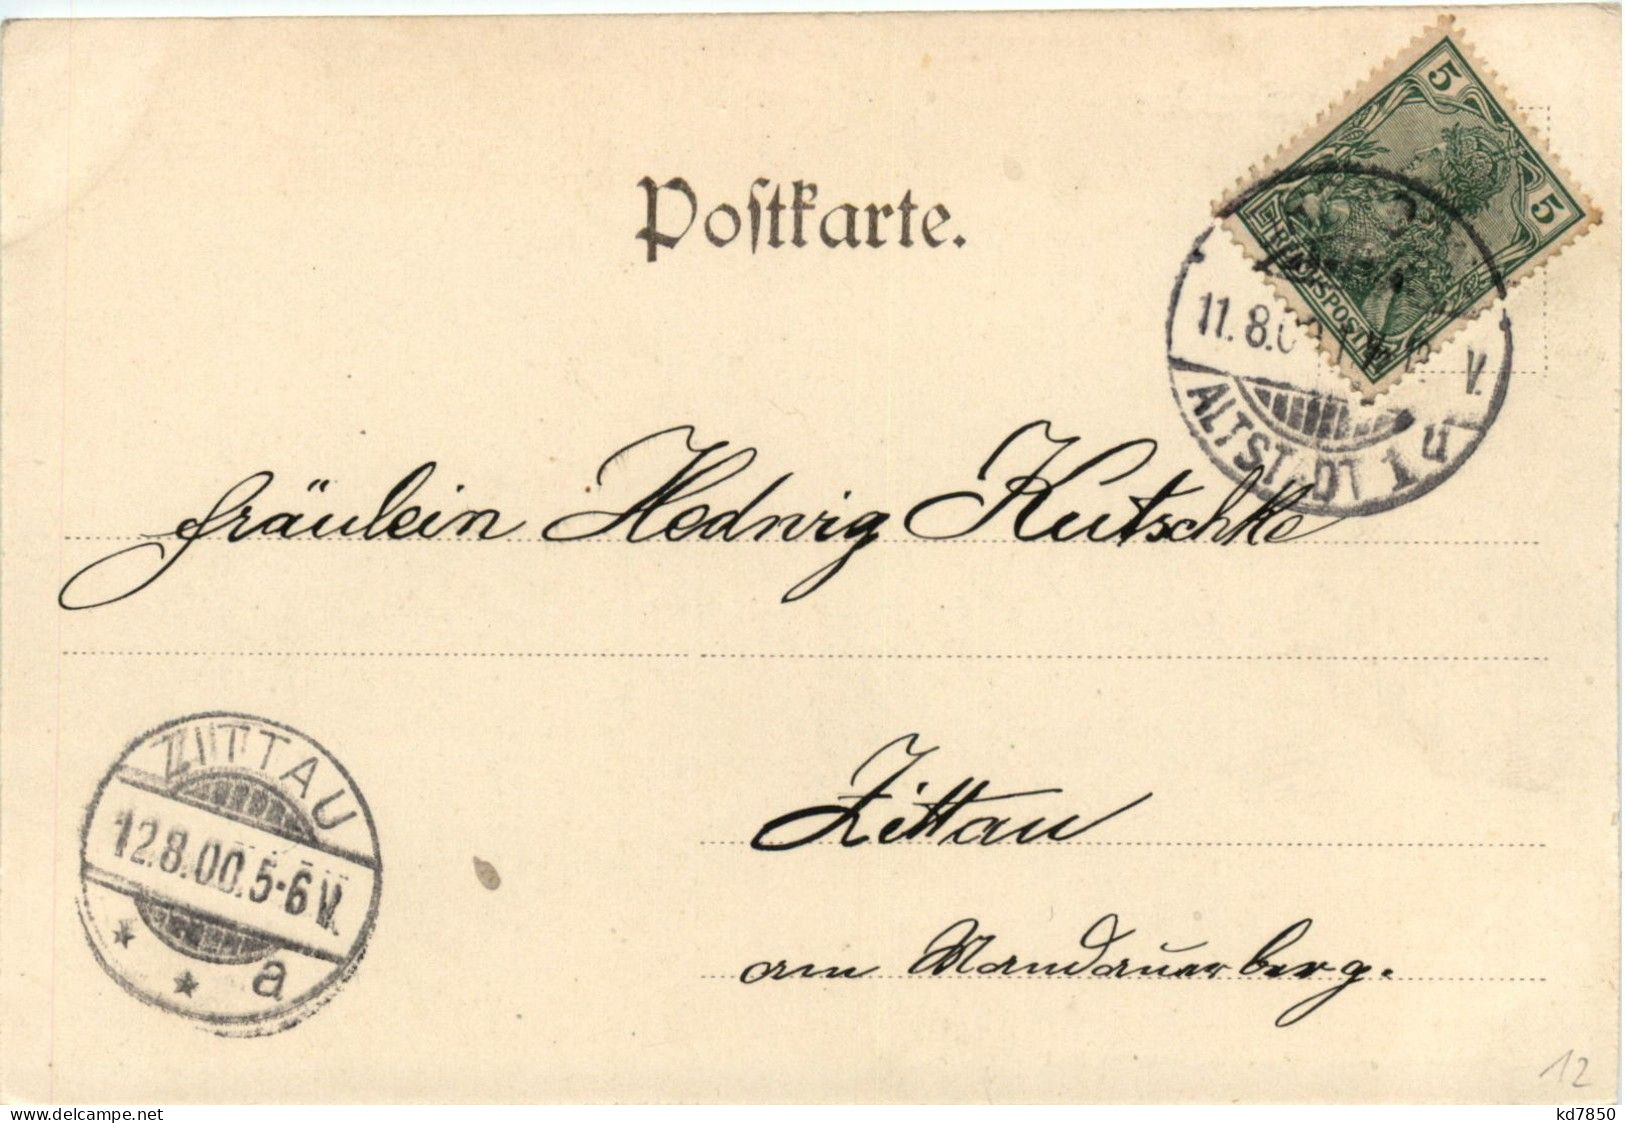 Postkarte.
5
5
REICHSPOST
11.8.0
V.
ALTSTADT 1 u
Fräulein Hedwig Kutschke
ZITTAU
12.8.00.5-6V.
* * a
Zittau
am Mandauerberg.
12
www.delcampe.net
kd7850